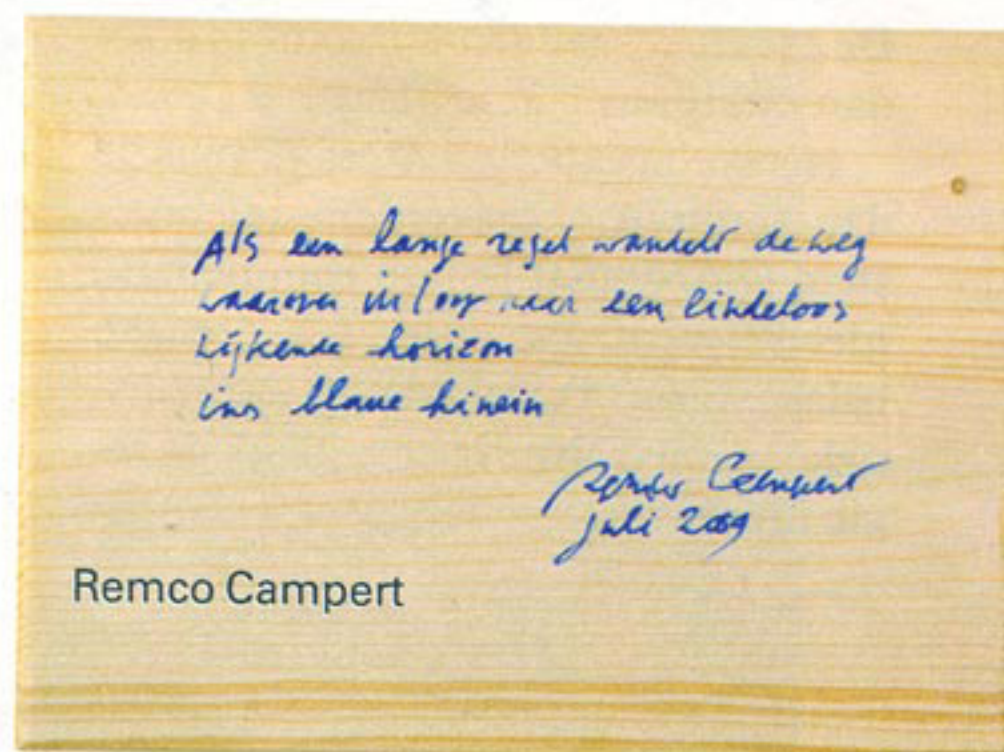 Als een lange regel wandelt de weg
waarover ik loop naar een eindeloos
wijkende horizon
ins blaue hinein
Remco Campert
juli 2009
Remco Campert